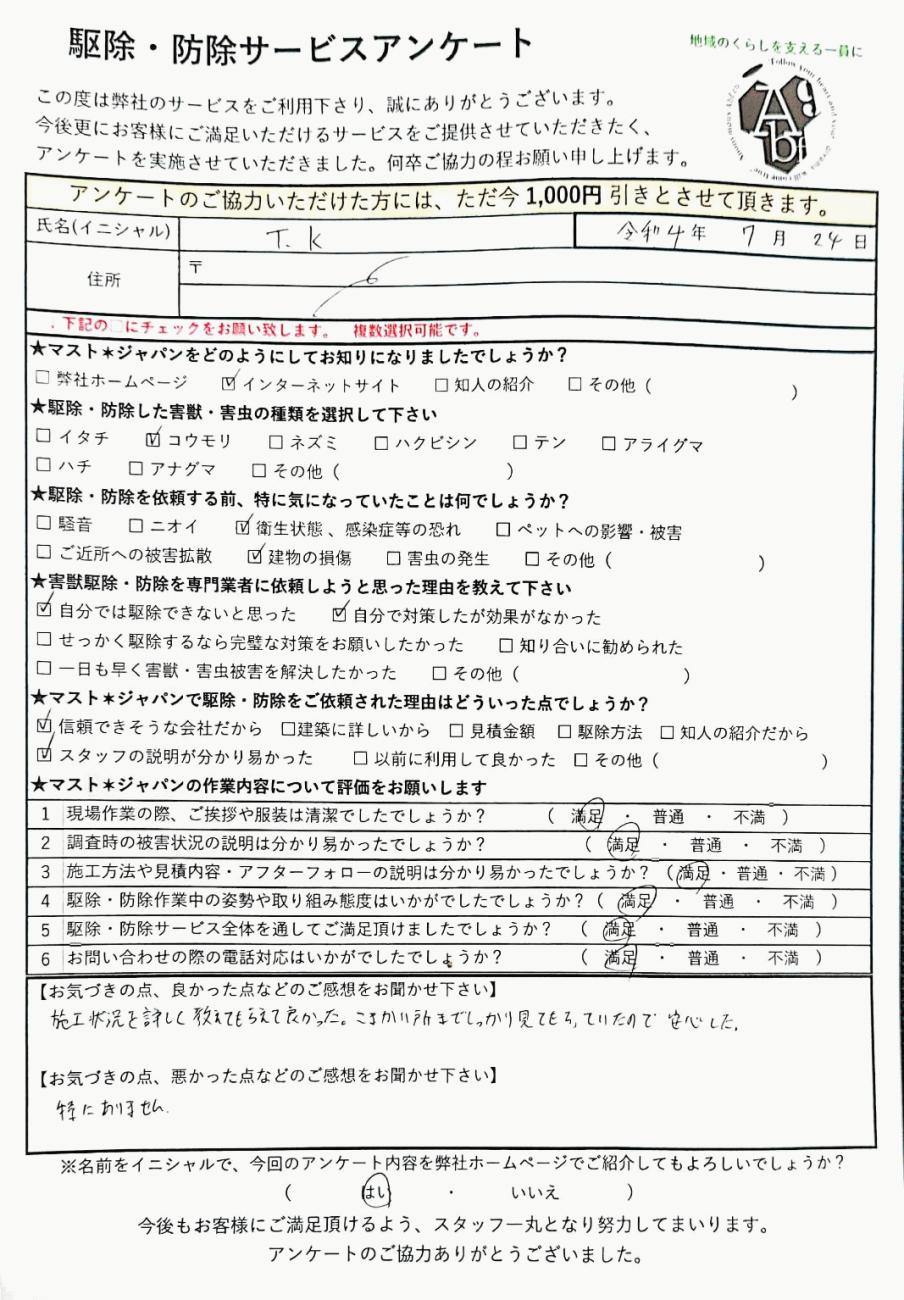 駆除・防除サービスアンケート
地域のくらしを支える一員に
この度は弊社のサービスをご利用下さり、誠にありがとうございます。
今後更にお客様にご満足いただけるサービスをご提供させていただきたく、
アンケートを実施させていただきました。何卒ご協力の程お願い申し上げます。
アンケートのご協力いただけた方には、ただ今 1,000円 引きとさせて頂きます。
氏名(イニシャル) T. K 令和4年 7月 24日
住所 〒
下記の□にチェックをお願い致します。 複数選択可能です。
★マスト＊ジャパンをどのようにしてお知りになりましたでしょうか？
□ 弊社ホームページ ☑ インターネットサイト □ 知人の紹介 □ その他（ ）
★駆除・防除した害獣・害虫の種類を選択して下さい
□ イタチ ☑ コウモリ □ ネズミ □ ハクビシン □ テン □ アライグマ
□ ハチ □ アナグマ □ その他（ ）
★駆除・防除を依頼する前、特に気になっていたことは何でしょうか？
□ 騒音 □ ニオイ ☑ 衛生状態 、感染症等の恐れ □ ペットへの影響・被害
□ ご近所への被害拡散 ☑ 建物の損傷 □ 害虫の発生 □ その他（ ）
★害獣駆除・防除を専門業者に依頼しようと思った理由を教えて下さい
☑ 自分では駆除できないと思った ☑ 自分で対策したが効果がなかった
□ せっかく駆除するなら完璧な対策をお願いしたかった □ 知り合いに勧められた
□ 一日も早く害獣・害虫被害を解決したかった □ その他（ ）
★マスト＊ジャパンで駆除・防除をご依頼された理由はどういった点でしょうか？
☑ 信頼できそうな会社だから □建築に詳しいから □ 見積金額 □ 駆除方法 □ 知人の紹介だから
☑ スタッフの説明が分かり易かった □ 以前に利用して良かった □ その他（ ）
★マスト＊ジャパンの作業内容について評価をお願いします
1 現場作業の際、ご挨拶や服装は清潔でしたでしょうか？ （ 満足 ・ 普通 ・ 不満 ）
2 調査時の被害状況の説明は分かり易かったでしょうか？ （ 満足 ・ 普通 ・ 不満 ）
3 施工方法や見積内容・アフターフォローの説明は分かり易かったでしょうか？（ 満足 ・ 普通 ・ 不満 ）
4 駆除・防除作業中の姿勢や取り組み態度はいかがでしたでしょうか？（ 満足 ・ 普通 ・ 不満 ）
5 駆除・防除サービス全体を通してご満足頂けましたでしょうか？ （ 満足 ・ 普通 ・ 不満 ）
6 お問い合わせの際の電話対応はいかがでしたでしょうか？ （ 満足 ・ 普通 ・ 不満 ）
【お気づきの点、良かった点などのご感想をお聞かせ下さい】
施工状況を詳しく教えてもらえて良かった。こまかい所までしっかり見てもらっていたので安心した。
【お気づきの点、悪かった点などのご感想をお聞かせ下さい】
特にありません。
※名前をイニシャルで、今回のアンケート内容を弊社ホームページでご紹介してもよろしいでしょうか？
（ はい ・ いいえ ）
今後もお客様にご満足頂けるよう、スタッフ一丸となり努力してまいります。
アンケートのご協力ありがとうございました。